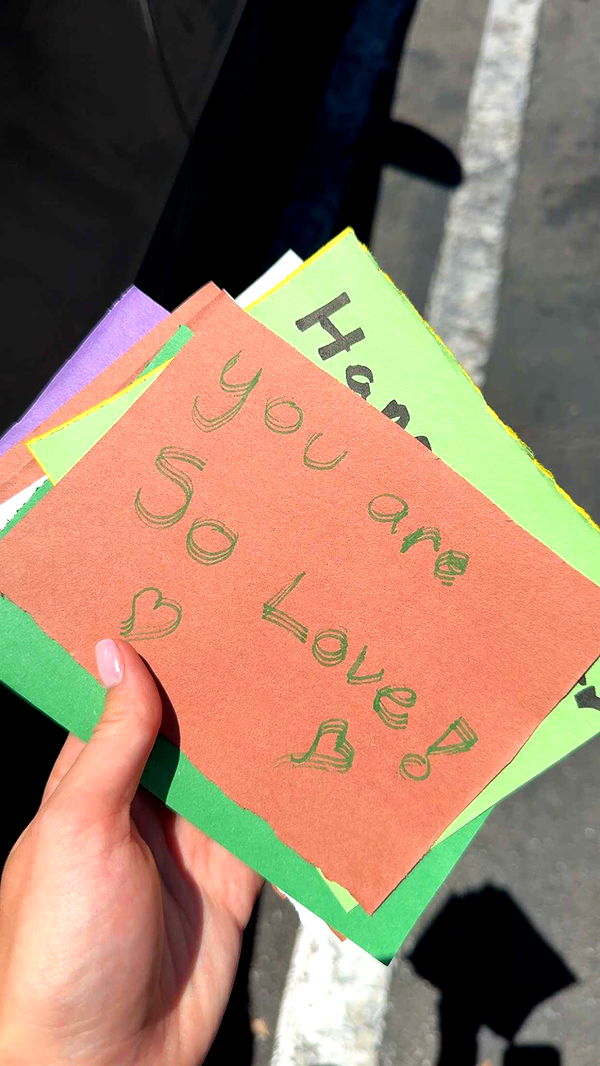 you are
So Love!